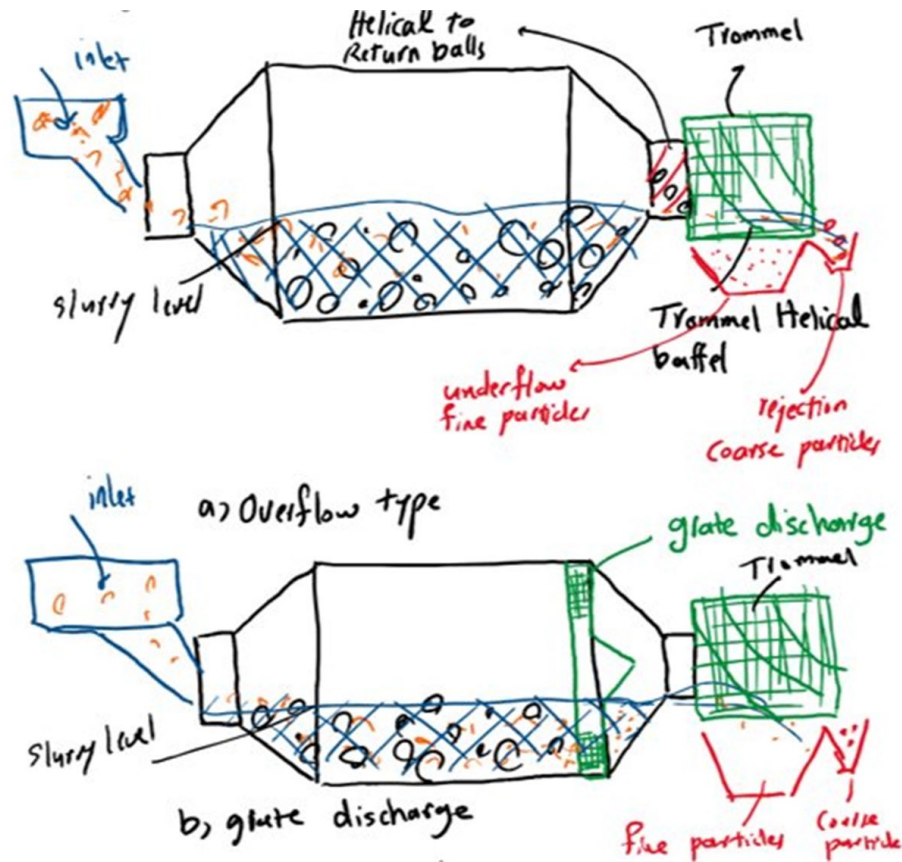 Helical to
Return balls
Trommel
inlet
slurry level
Trommel Helical
baffel
underflow
fine particles
rejection
coarse particles
a) Overflow type
inlet
grate discharge
Trommel
slurry level
b) grate discharge
fine particles
Coarse
particle